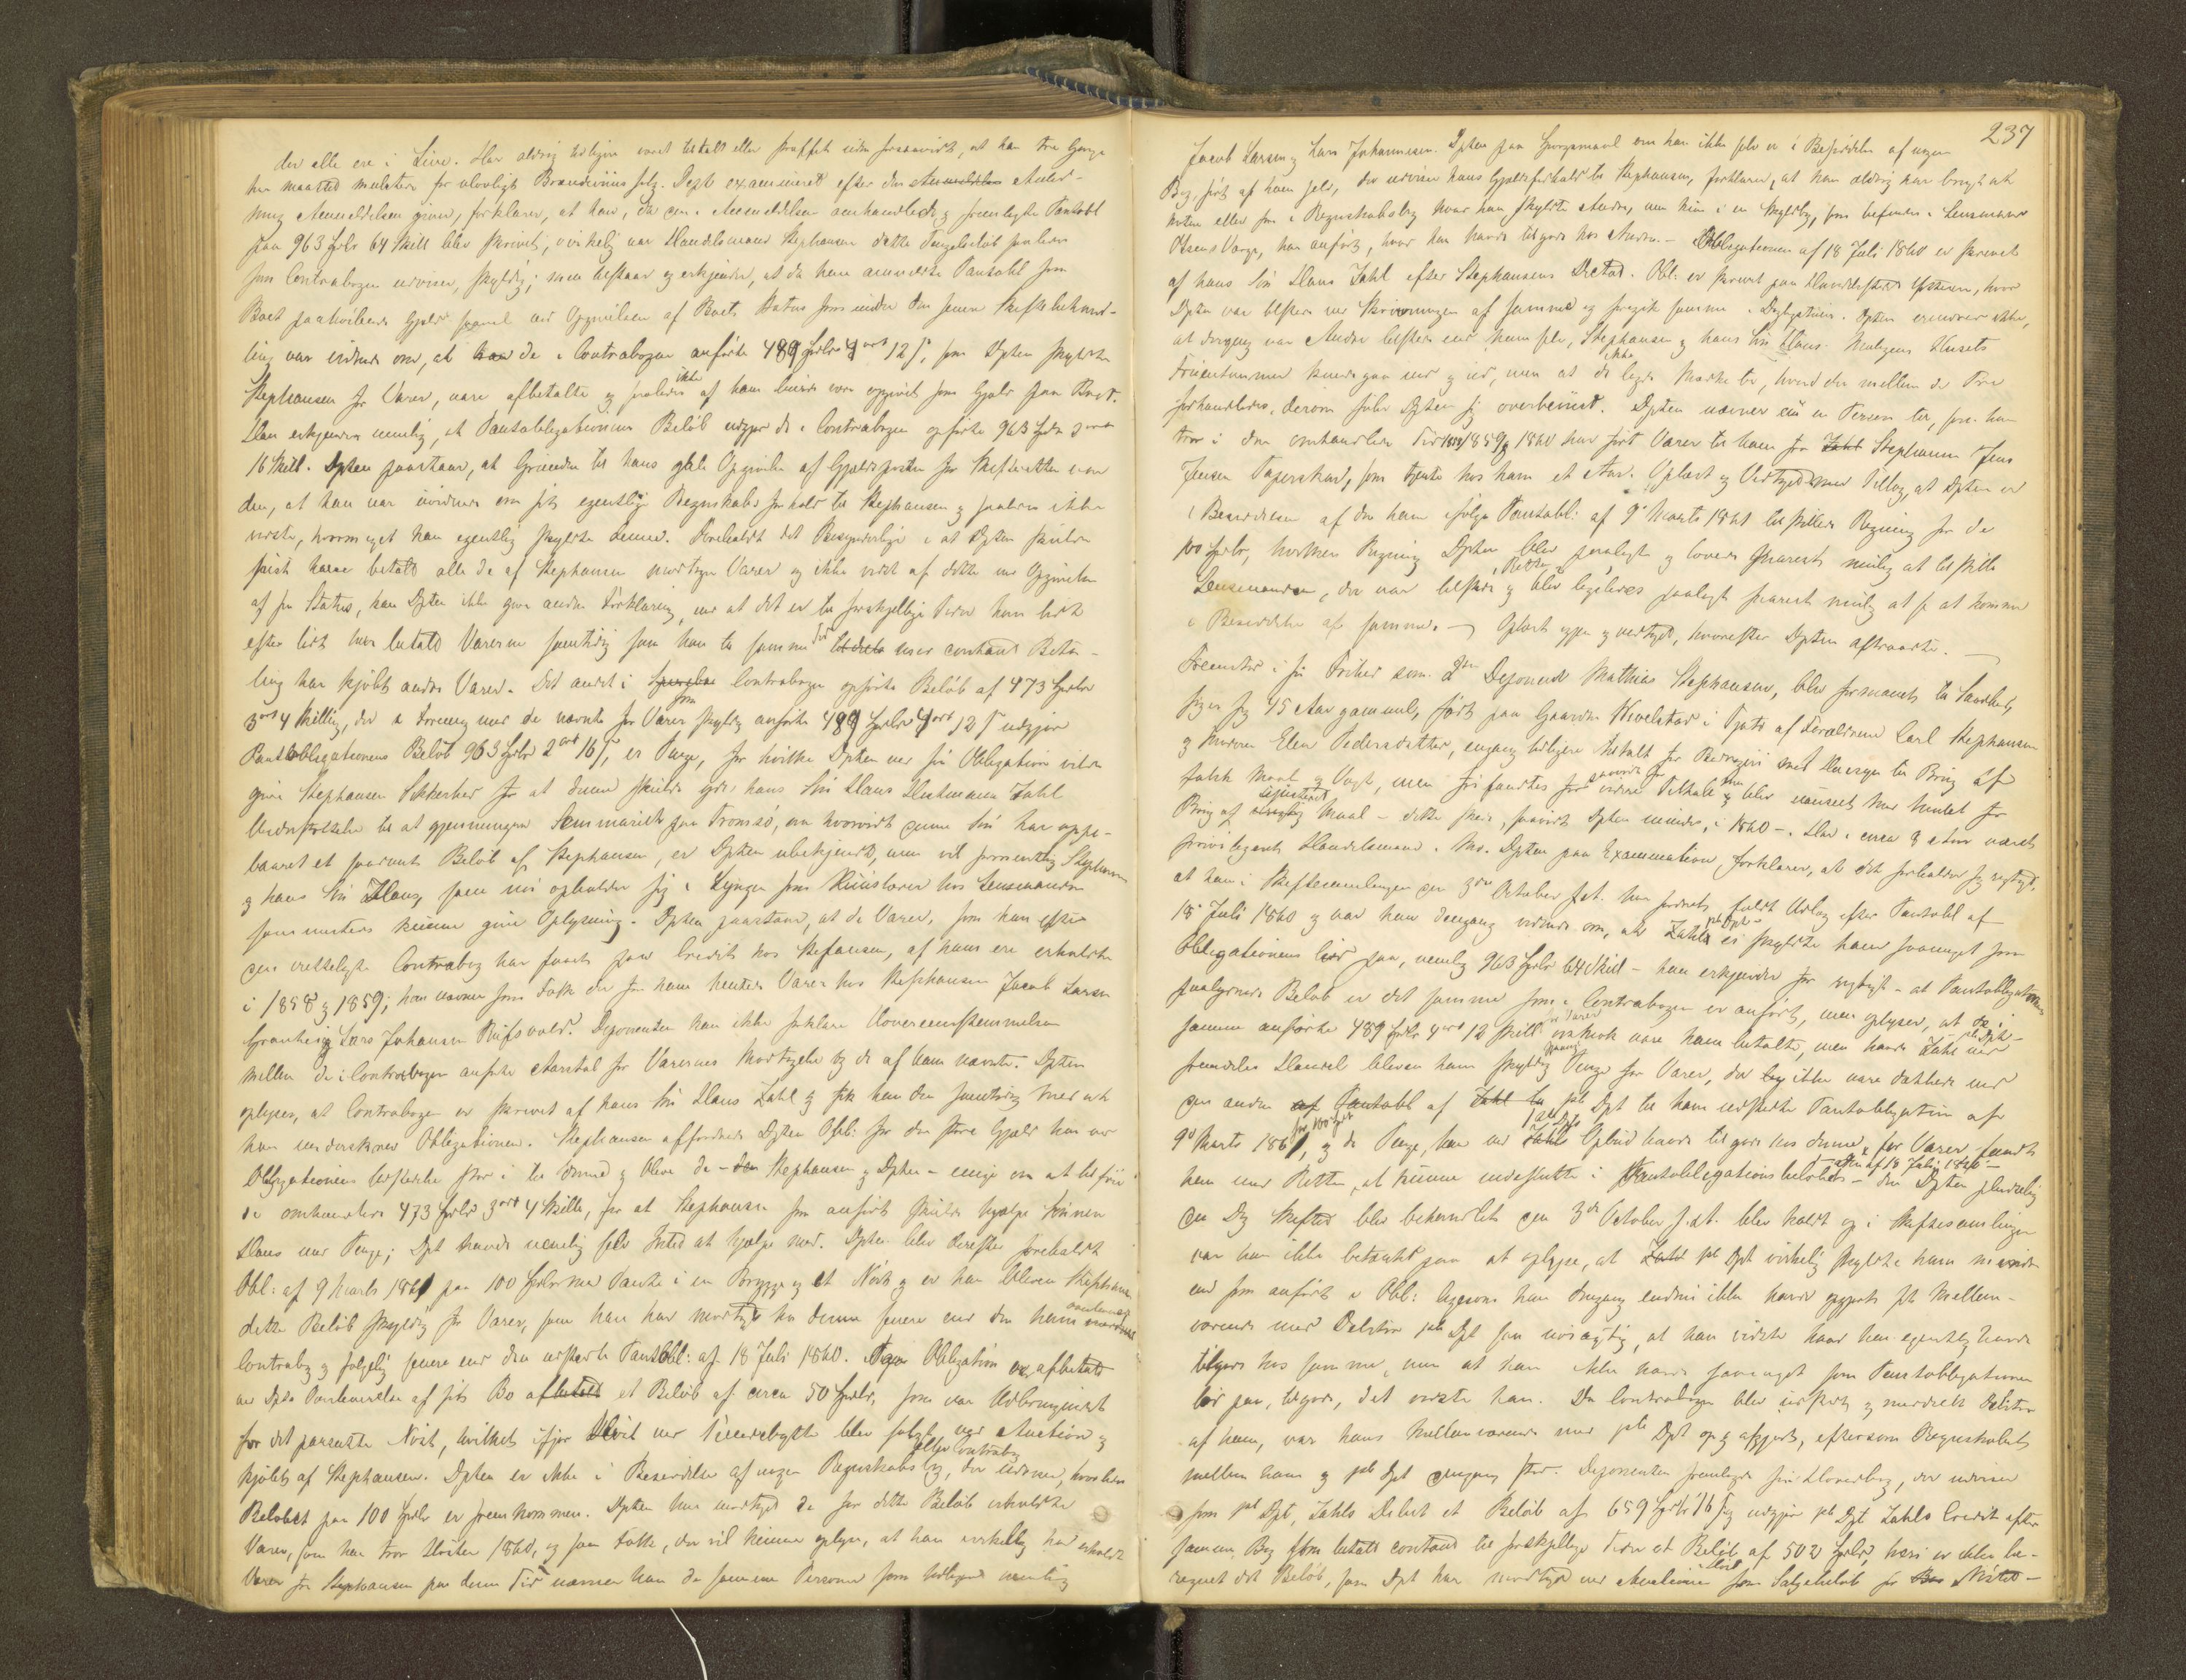 der alle ere i Live. Har aldrig tidligere været tiltalt eller straffet uden forsaavidt, at han tre Gange
har maattet mulctere for ulovligt Brændeviins salg. Dept examineret efter den Anmeldelse Anled-
ning Anmeldelsen giver, forklarer, at han, da den i Anmeldelsen omhandlede og fremlagte Pantobl
paa 963 Spdlr 64 Skill blev skrevet, virkelig var Handelsmand Stephansen dette Pengebeløb saaledes
som Contrabogen udviser, skyldig; men tilstaar og erkjender, at da han anmeldte Pantobl som
Boet paahvilende Gjæld saavel ved Opgivelsen af Boets Status som under den senere Skiftebehand-
ling var vidende om, at de i Contrabogen anførte 489 Spdlr 4 ort 12 s, som Dpten skyldte
Stephansen for Varer, vare afbetalte og saaledes af ham burde ikke være opgivet som Gjæld paa Boet.
Han erkjender nemlig, at Pantobligationens Beløb udgjør de i Contrabogen opførte 963 Spdlr 2 ort
16 Skill. Dpten paastaar, at Grunden til hans gale Opgivelse af Gjældsposten for Skifteretten var
den, at han var uvidende om sit egentlige Regnskabs forhold til Stephansen og saaledes ikke
vidste, hvormeget han egentlig skyldte denne. Foreholdt det Besynderlige i at Dpten skulde
først have betalt alle de af Stephansen modtagne Varer og ikke vidst af dette ved Opgivelsen
af sin Status, kan Dpten ikke give anden Forklaring, end at det er til forskjellige Tider han lidt
efter lidt har betalt Varerne samtidig som han til samme Tid mod contant Beta-
ling har kjøbt andre Varer. Det andet i Contrabogen opførte Beløb af 473 Spdlr
3 ort 4 Skilling, der i Forening med de nævnte for Varer skyldig anførte 489 Spdlr 4 ort 12 s udgjør
Pantobligationens Beløb 963 Spdlr 2 ort 16 s, er Penge, for hvilke Dpten ved sin Obligation vilde
give Stephansen Sikkerhed for at denne skulde yde hans Søn Hans Hartmann Zahl
Understøttelse til at gjennemgaa Seminariet paa Tromsø, om hvorvidt denne Søn har oppe-
baaret et saadant Beløb af Stephansen, er Dpten ubekjendt, men vil formentlig Stephansen
og hans Søn Hans, som nu opholder sig i Lyngen som Huuslærer hos Lensmanden
sammesteds kunne give Oplysning. Dpten paastaar, at de Varer, som han efter
den vedlagte Contrabog har faaet paa Credit hos Stefansen, af ham ere erholdte
i 1858 og 1859; han nævner som Folk der for ham hentede Varer hos Stephansen Jacob Larsen
Grønlieig Lars Johansen Rufsvold. Deponenten kan ikke forklare Uoverensstemmelsen
mellem de i Contrabogen anførte Aarstal for Varernes Modtagelse og de af ham nævnte. Dpten
oplyser, at Contrabogen er skrevet af hans Søn Hans Zahl og fik han den samtidig med at
han underskrev Obligationen. Stephansen affordrede Dpten Obl: for den store Gjæld han ved
Obligationens Udstedelse stod i til denne og bleve de – Stephansen og Dpten – enige om at tilføie
de omhandlede 473 Spdlr 3 ort 4 Skill, for at Stephansen som anført skulde hjælpe Sønnen
Hans med Penge; Dpt havde nemlig selv Intet at hjælpe med. Dpten blev derefter foreholdt
Obl: af 9 Marts 1861 paa 100 Spdlr med Pant i en Brygge og et Nøst og er han bleven Stephansen
dette Beløb skyldig for Varer, som han har modtaget fra denne senere end den ham omhandl
Contrabog og følgelig senere end den udstedte Pantobl: af 18 Juli 1860. Obligation er afbetalt
ved Dpts Overleverelse af sit Bo et Beløb af circa 50 Spdlr, som var Udbringendet
for det pantsatte Nøst, hvilket ifjor blevet ved Tvendebytte blev solgt ved Auction og
kjøbt af Stephansen. Dpten er ikke i Besiddelse af nogen Regnskabsbog eller Contrabog, der udviser, hvorledes
Beløbet paa 100 Spdlr er fremkommen. Dpten har modtaget de for dette Beløb erholdte
Varer, som han tror Høsten 1860, og som Folk, der vil kunne oplyse, at han virkelig har erholdt
Varer fra Stephansen paa denne Tid nævner han de samme Personer som tidligere nemlig
237
Jacob Larsen og Lars Johannesen. Dpten paa Spørgsmaal om han ikke selv er i Besiddelse af nogen
Bog ført af ham selv, der udviser hans Gjældsforhold til Stephansen, forklarer, at han aldrig har brugt at
notere eller føre i Regnskabsbog hvad han skyldte Andre, men kun i en Skyldbog, som befinder i Lensmand
Olsens Værge, har anført, hvad han havde tilgode hos Andre. – Obligationen af 18 Juli 1860 er skrevet
af hans Søn Hans Zahl efter Stephansens Dictat. Obl: er skrevet paa Handelsstedet, hvor
Dpten var tilstede ved Skrivningen af samme og foregik samme i Dagligstuen. Dpten erindrer ikke,
at dengang var Andre tilstede end ham selv, Stephansen og hans Søn Hans. Muligens Husets
Fruentimmer kunde gaa ind og ud, men at de ikke lagde Mærke til, hvad der mellem de Tre
forhandledes, derom føler Dpten sig overbeviist. Dpten nævner end en Person til, som han
tror i den omhandlede Tid 1858/1859 og 1860 har ført Varer til ham fra Stephansen Jens
Jensen Tagerskard, som tjente hos ham et Aar. Oplæst og Vedtaget med Tillæg, at Dpten er
i Besiddelse af den ham ifølge Pantobl: af 9 Marts 1861 tilstillede Regning for de
100 Spdlr, hvilken Regning Dpten blev paalagt og lovede snarest mulig at tilstille
Lensmanden, der var tilstede i Retten og blev ligeledes paalagt snarest mulig at komme
i Besiddelse af samme. – Oplæst igjen og vedtaget, hvorefter Dpten aftraadte. –
Fremstod i sin Frihed som 2den Deponent Mathias Stephansen, blev formanet til Sandhed,
siger sig 45 Aar gammel, født paa Gaarden Nevelstad i Fjære af Forældrene Carl Stephansen
og Moderen Elen Pedersdatter, engang tidligere tiltalt for Bedrageri med Hensyn til Brug af
falsk Maal og Vægt, men frifandtes forsaavidt for videre Tiltale og blev uanseet han mulct for
Brug af ujusteret Maal – dette skede, saavidt Dpten mindes, i 1860 –. Har i circa 8 Aar været
privilegeret Handelsmand. Mo. Dpten paa Examination, forklarer, at det forholder sig rigtigt,
at han i Skiftesamlingen den 3die October f. A. har fordret fuldt Udlæg efter Pantobl af
18 Juli 1860 og var han dengang vidende om, at Zahl ei skyldte ham saameget som
Obligationens lød paa, nemlig 963 Spdlr 64 Skill – han erkjender for rigtigt – at Pantobligationens
paalydende Beløb er det samme som i Contrabogen er anført, men oplyser, at de i
samme anførte 489 Spdlr 4 ort 12 Skill for Varer vare ham betalte, men havde Zahl ved
fremdeles Handel bleven ham skyldig Penge for Varer, der ikke vare dækkede ved
den anden Pantobl af 1ste Dpt til ham udstedte Pantobligation af
9de Marts 1861, for 100 Spdlr og de Penge, han ved Opbud havde tilgode hos denne for Varer, fandt
han med Retten, at kunne indeslutte i Pantobligationsbeløbet – den af 18 Juli 1860 – Dpten pludselig
den Dag Skiftet blev behandlet den 3die October f. A. blev kaldt op i Skiftesamlingen
var han ikke betænkt paa at oplyse, at 1ste Dpt virkelig skyldte ham mindre
end som anført i Obl: ligesom han dengang endnu ikke havde opgjort sit Mellem-
værende med Debitor 1ste Dpt saa nøiagtig, at han vidste hvad han egentlig havde
tilgode hos samme, men at han ikke havde saameget som Pantobligationen
lød paa, tilgode, det vidste han. Da Contrabogen blev udstedt og meddeelt Debitor
af ham, var hans Mellemværende med 1ste Dpt op og afgjort, eftersom Regnskabet
mellem ham og 1ste Dpt dengang stod. Deponenten fremlagde sin Hovedbog, der udviser
som 1ste Dpt, Zahls Debet et Beløb af 659 Spdlr 16 s og udgjør 1ste Dpt Zahls Credit efter
samme Bog som betalt contant til forskjellige Tider et Beløb af 502 Spdlr, heri er ikke be-
regnet det Beløb, som Dpt har modtaget ved Auctionen som Salgebeløb for Nøstet –